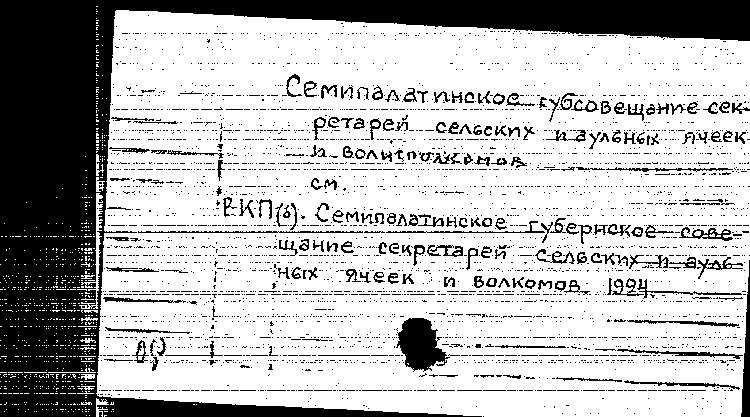 Семипалатинское губсовещание сек-
ретарей сельских и аульных ячеек
и волисполкомов
см.
ВКП(б). Семипалатинское губернское сове-
щание секретарей сельских и ауль-
ных ячеек и волкомов. 1924.